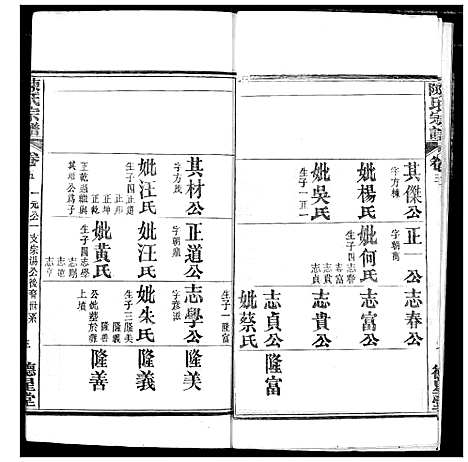 陳氏宗譜
卷五
其傑公
字方棟
妣楊氏
妣吳氏
生子一正一
正一公
字朝萬
妣何氏
生子四志春
志富
志貴
志貞
志春公
志富公
志貴公
志貞公
妣蔡氏
生子一隆富
隆富
其材公
字方茂
妣汪氏
生子四正道
正邦
正坤
正乾
正乾過繼與
其煌公為子
正道公
字朝鼎
妣汪氏
妣黃氏
生子四志學
志剛
志道
志亨
志學公
字彥派
妣朱氏
生子三隆美
隆義
隆善
公妣墓於寨
上墳
隆美
隆義
隆善
陳氏宗譜
卷五
一元公一支宗湖公後裔世系
三
德星堂
德星堂